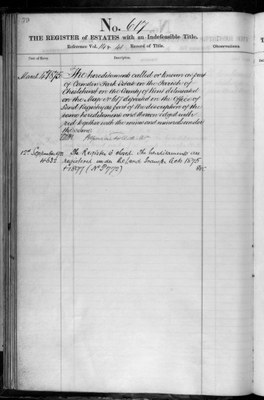 39
No. 617
THE REGISTER of ESTATES with an Indefeasible Title.
Reference Vol. Record of Title.
Observations
Date of Entry
March 1875 The hereditaments called or known as part
of Camden Park Estate in the Parish of
Chislehurst in the County of Kent delineated
on the Map No 617 deposited in the Office of
Land Registry as part of the description of the
same hereditaments and thereon edged with
red together with the mines and minerals under
the same
The Register is closed. The hereditaments are
registered under the Land Transfer Acts 1875
& 1897 (No